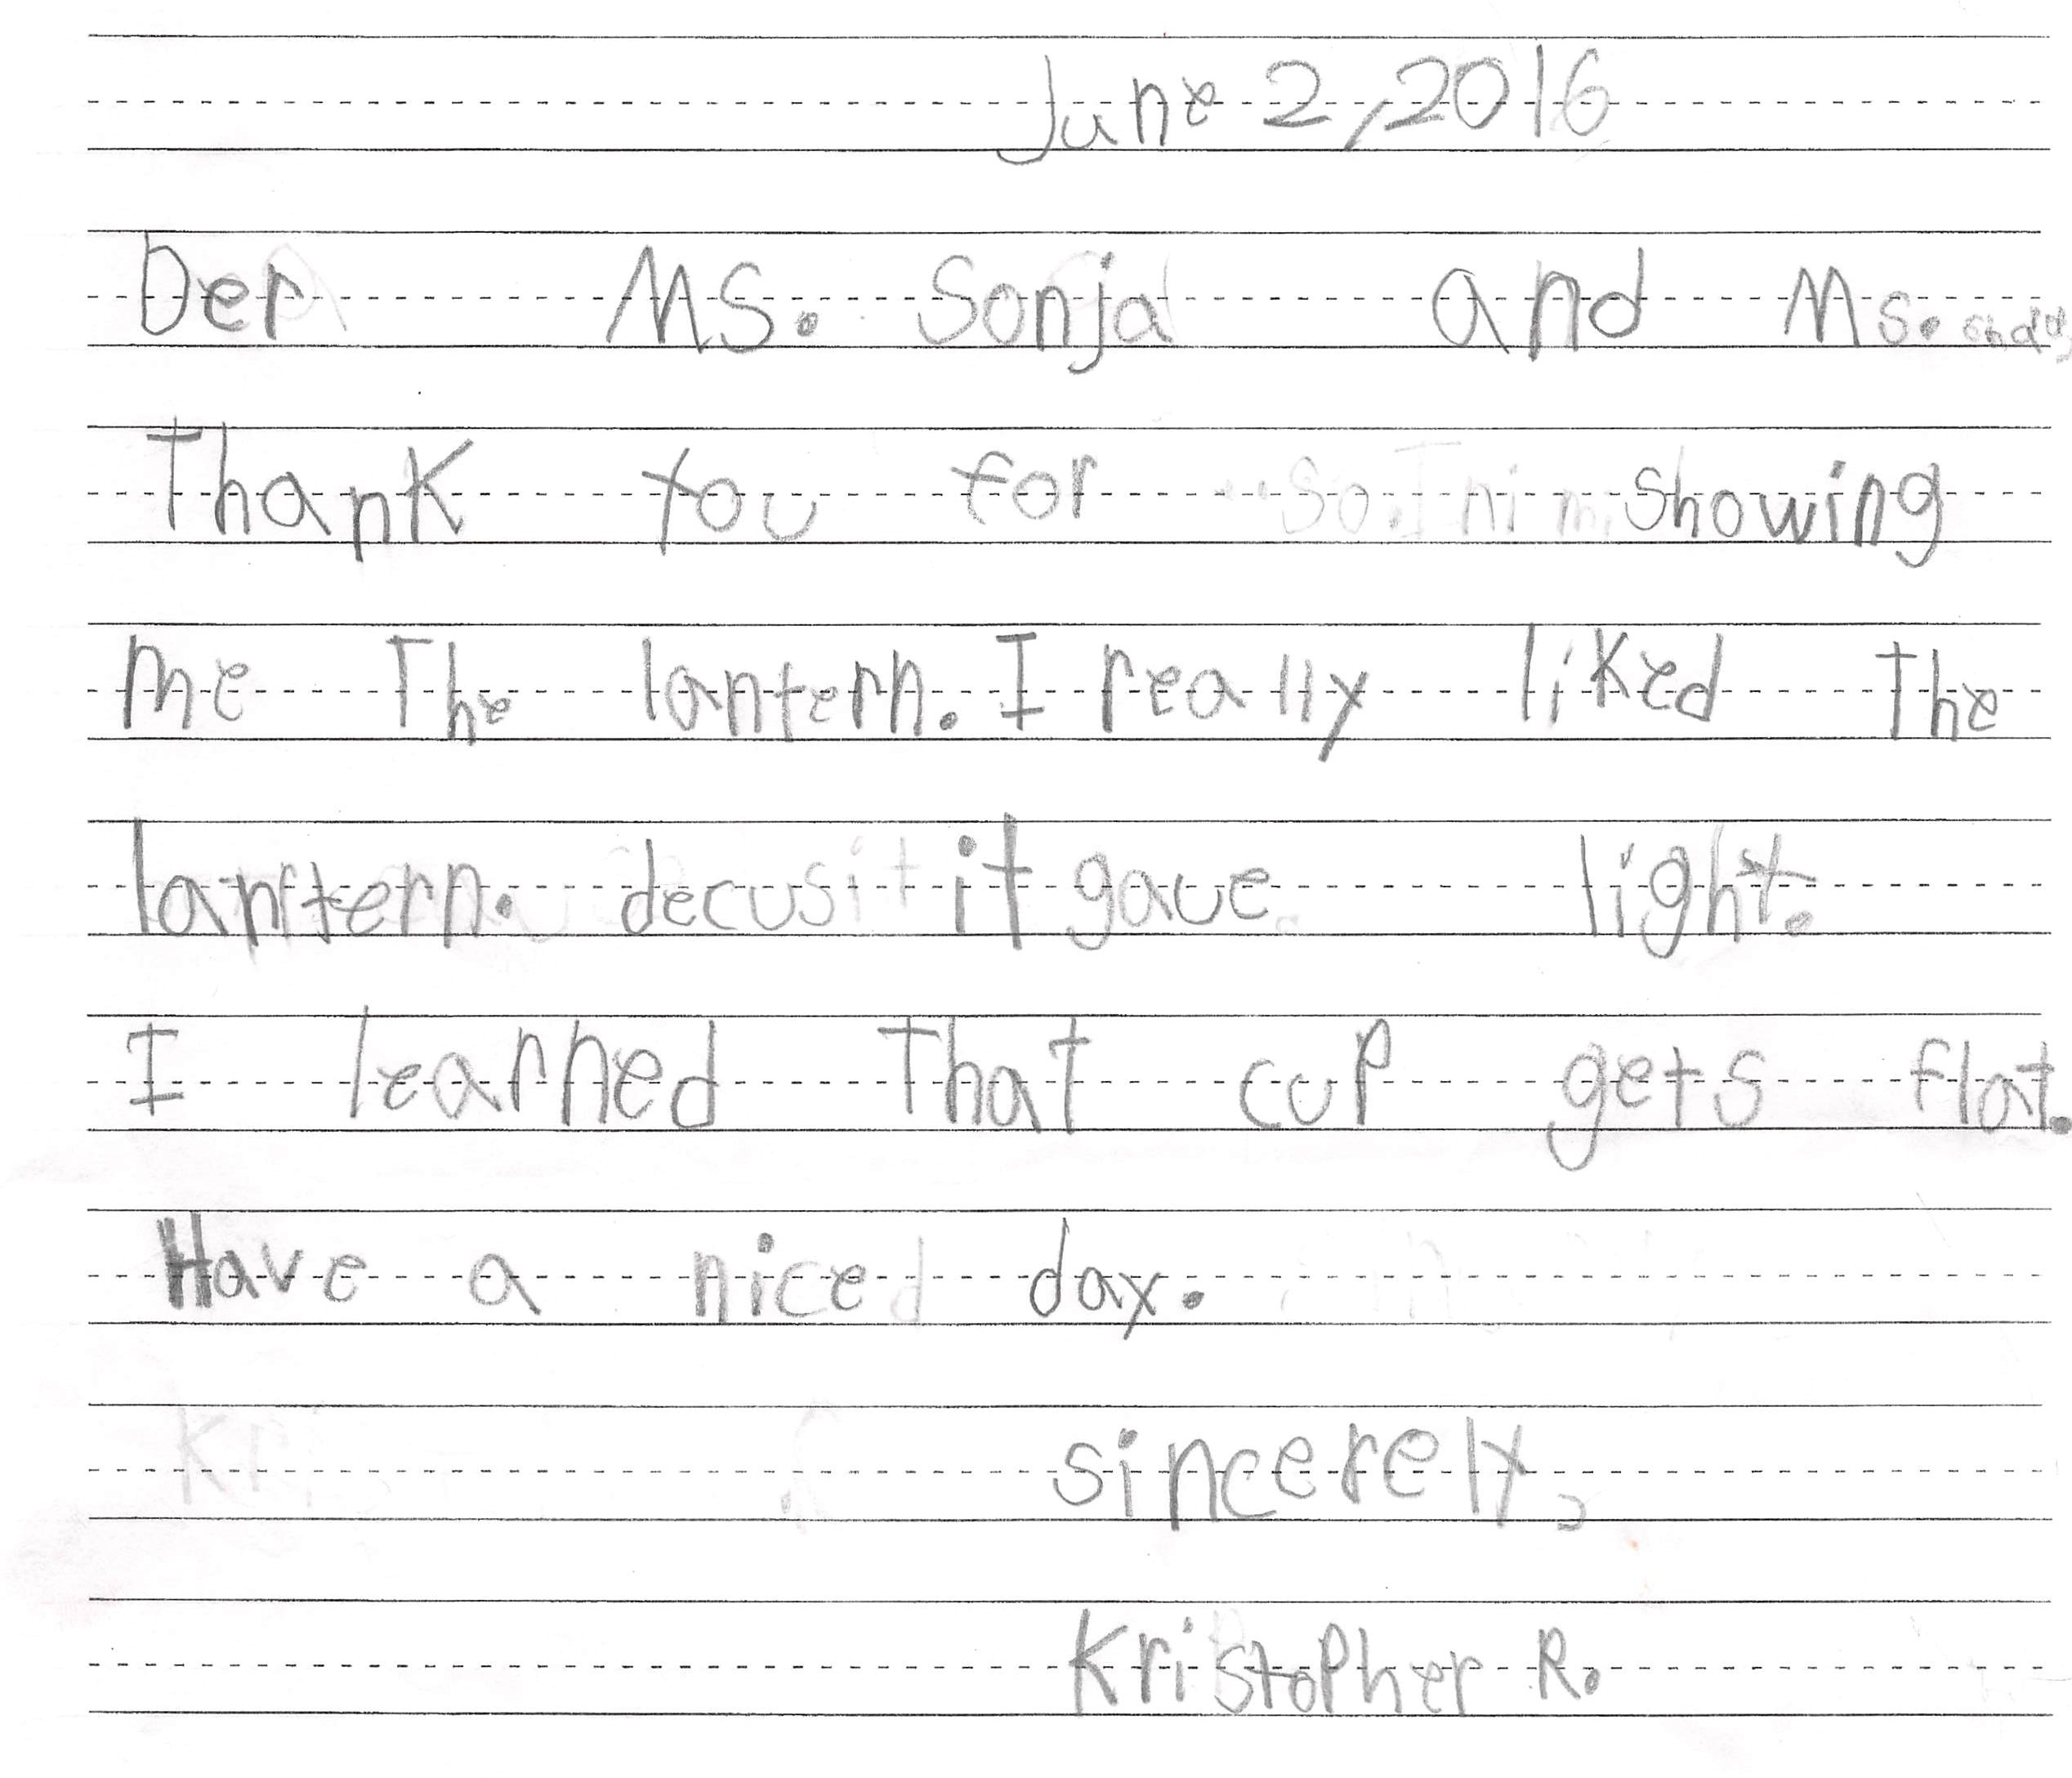 June 2, 2016
Der Ms. Sonja and Ms.
Thank you for showing
me The lantern. I really liked the
lantern. decus it gave light.
I learned That cup gets flat.
Have a nice day.
sincerely,
Kristopher R.